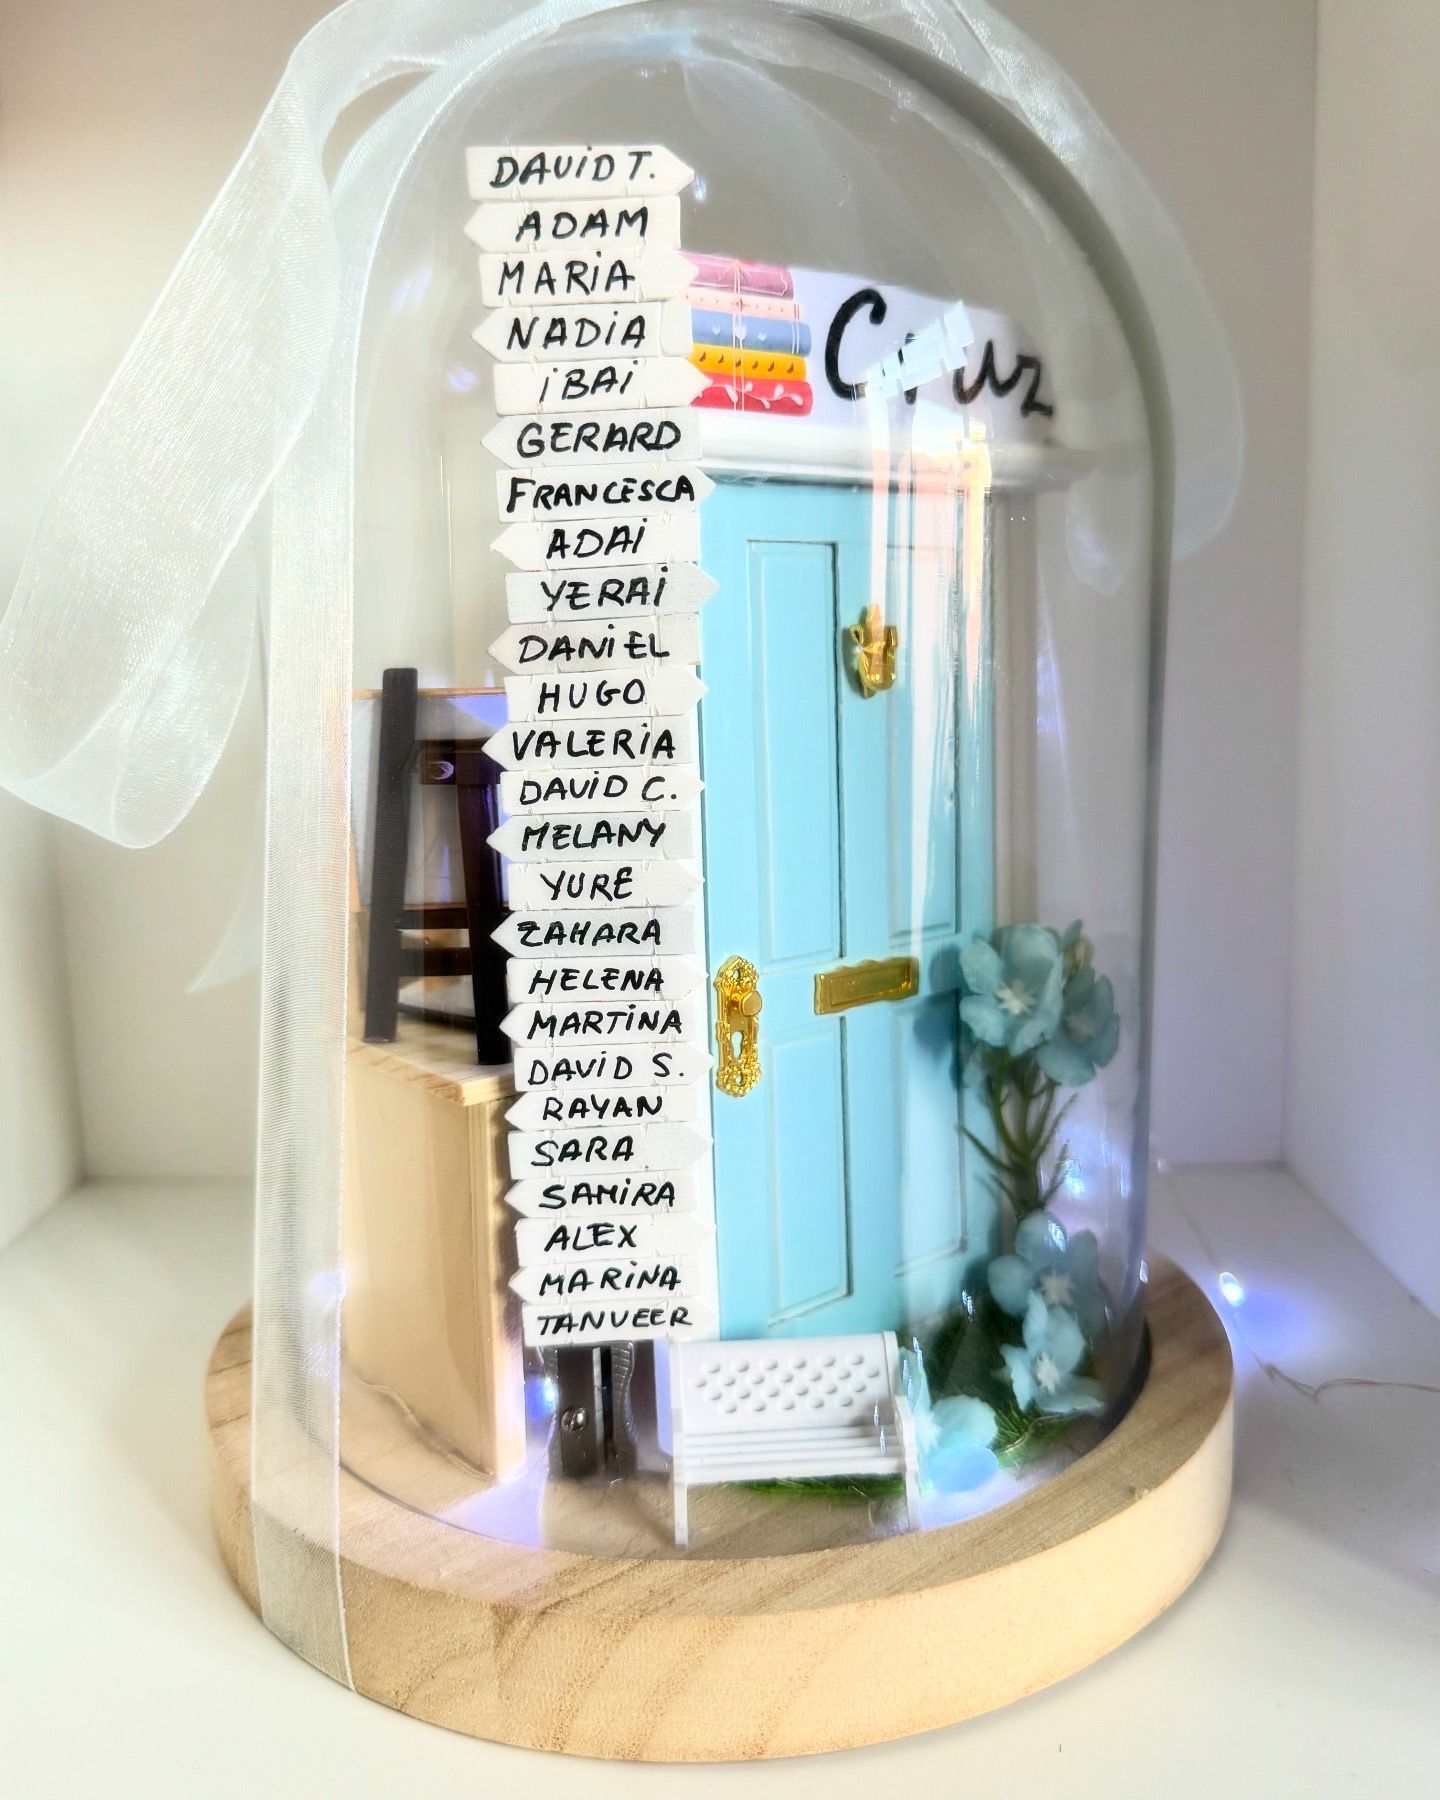 DAViD T.
ADAM
MARiA
NADiA
iBAi
GERARD
FRANCESCA
ADAi
YERAi
DANiEL
HUGO
VALERiA
DAViD C.
MELANY
YURE
ZAHARA
HELENA
MARTiNA
DAViD S.
RAYAN
SARA
SAMiRA
ALEX
MARiNA
TANVEER
Cruz